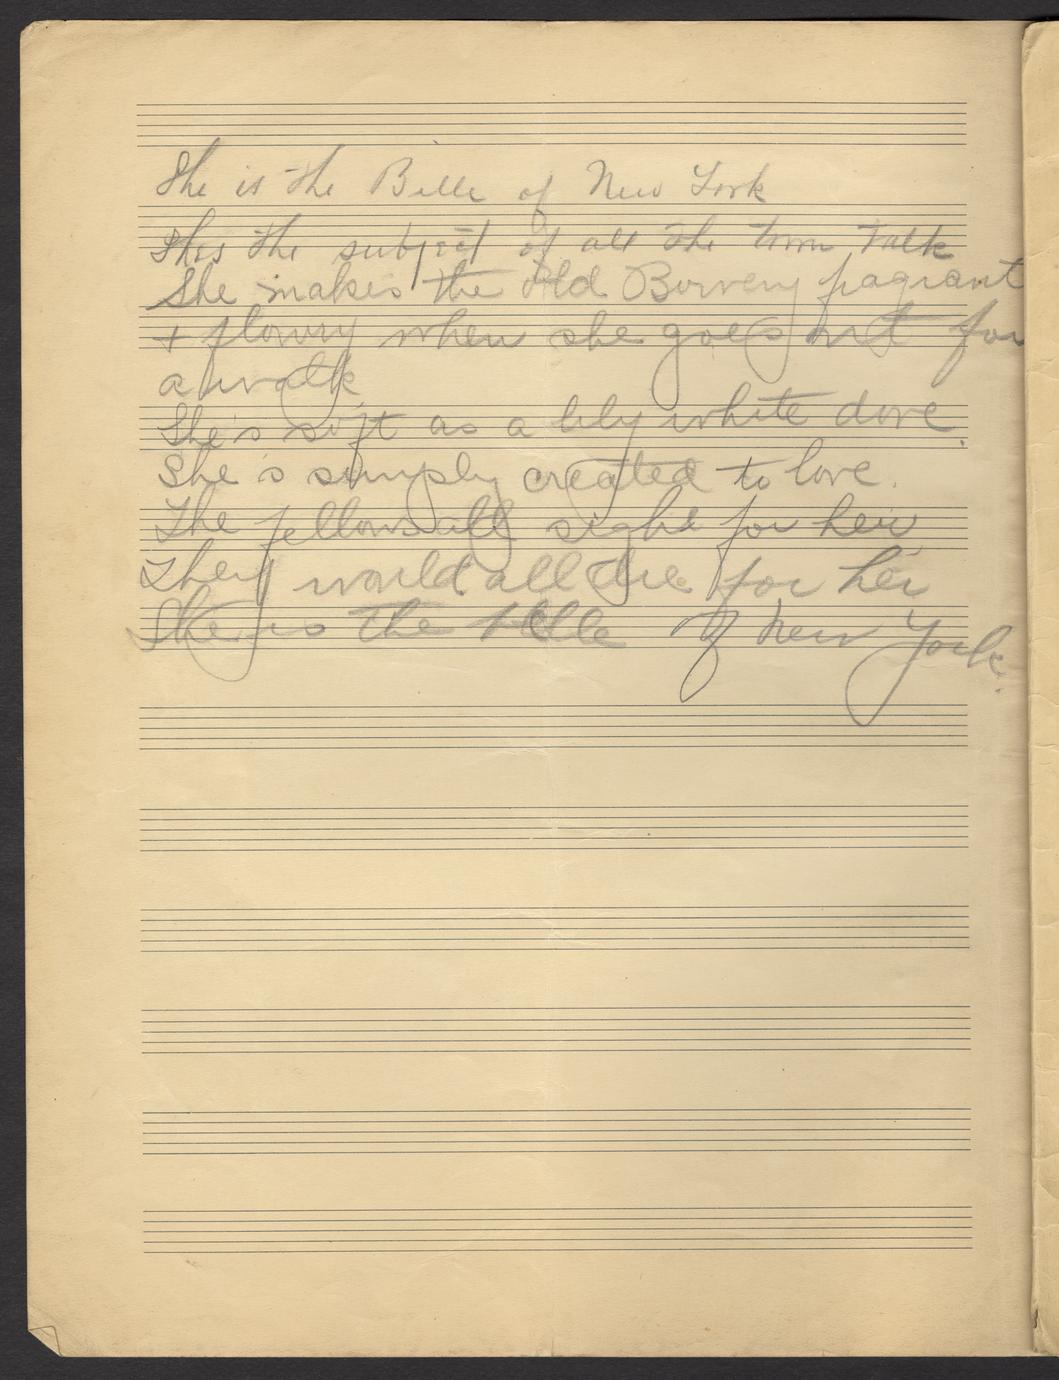 She is the Belle of New York
Shes the subject of all the town talk
She makes the old Bowery fragrant
+ flowry when she goes out for
a walk
She's soft as a lily white dove.
She's simply created to love.
The fellows all sighe for her
They would all die for her
She is the Belle of New York.